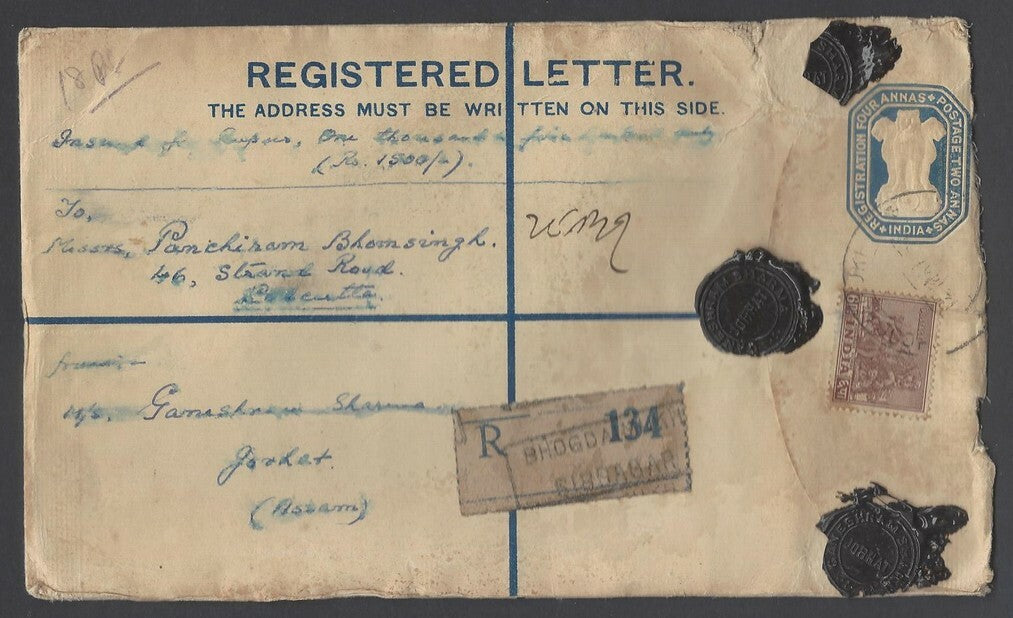 18
REGISTERED LETTER.
THE ADDRESS MUST BE WRITTEN ON THIS SIDE.
Insured for Rupees, One thousand & five hundred only
(Rs. 1500/-).
To,
Messrs, Panchiram Bhomsingh.
46, Strand Road.
Calcutta.
from:-
M/s. Ganeshram Sharma
Jorhat.
(Assam)
R 134
BHOGDA
SIBSAGAR
REGISTRATION FOUR ANNAS POSTAGE TWO ANNAS
INDIA
INDIA
GANESHRAM SHARMA
JORHAT
JORHAT